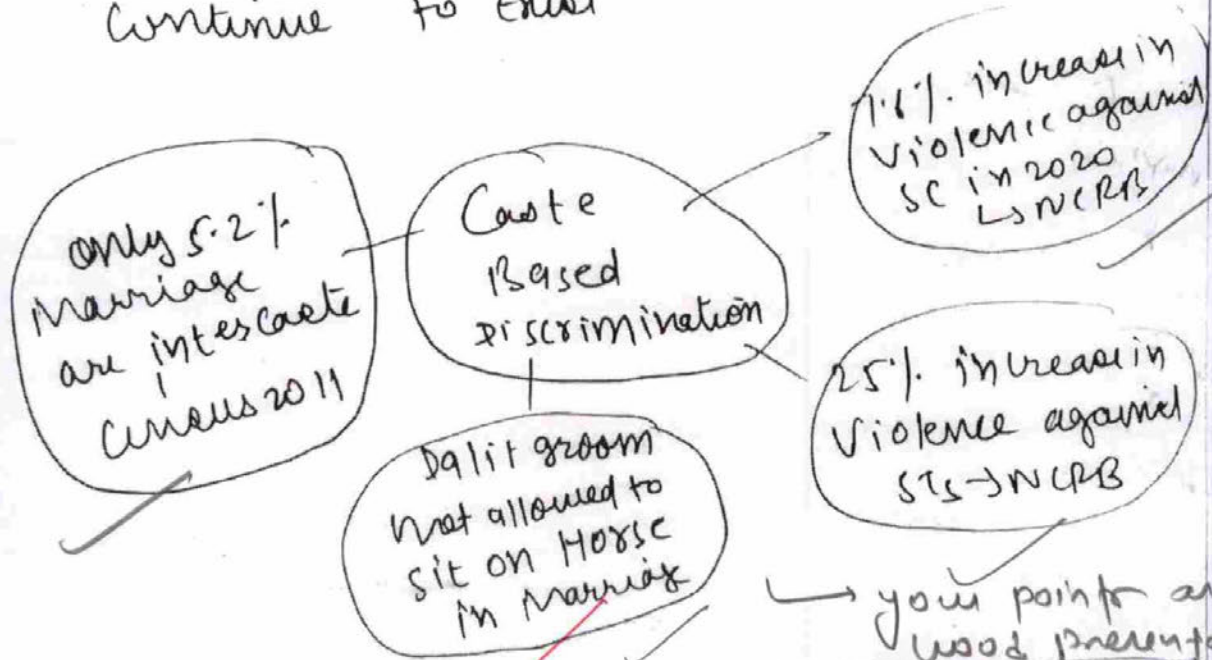 Continue to exist
only 5.2%
Marriage
are intercaste
Census 2011
Caste
Based
Discrimination
increase in
violence against
SC in 2020
↳ NCRB
25% increase in
violence against
STs → NCRB
Dalit groom
not allowed to
sit on Horse
in Marriage
→ your points are
good